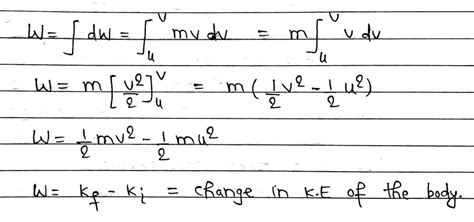 W = ∫ dW = ∫_u^v mv dv = m ∫_u^v v dv
W = m [v²/2]_u^v = m (1/2 v² - 1/2 u²)
W = 1/2 mv² - 1/2 mu²
W = K_f - K_i = change in K.E of the body.